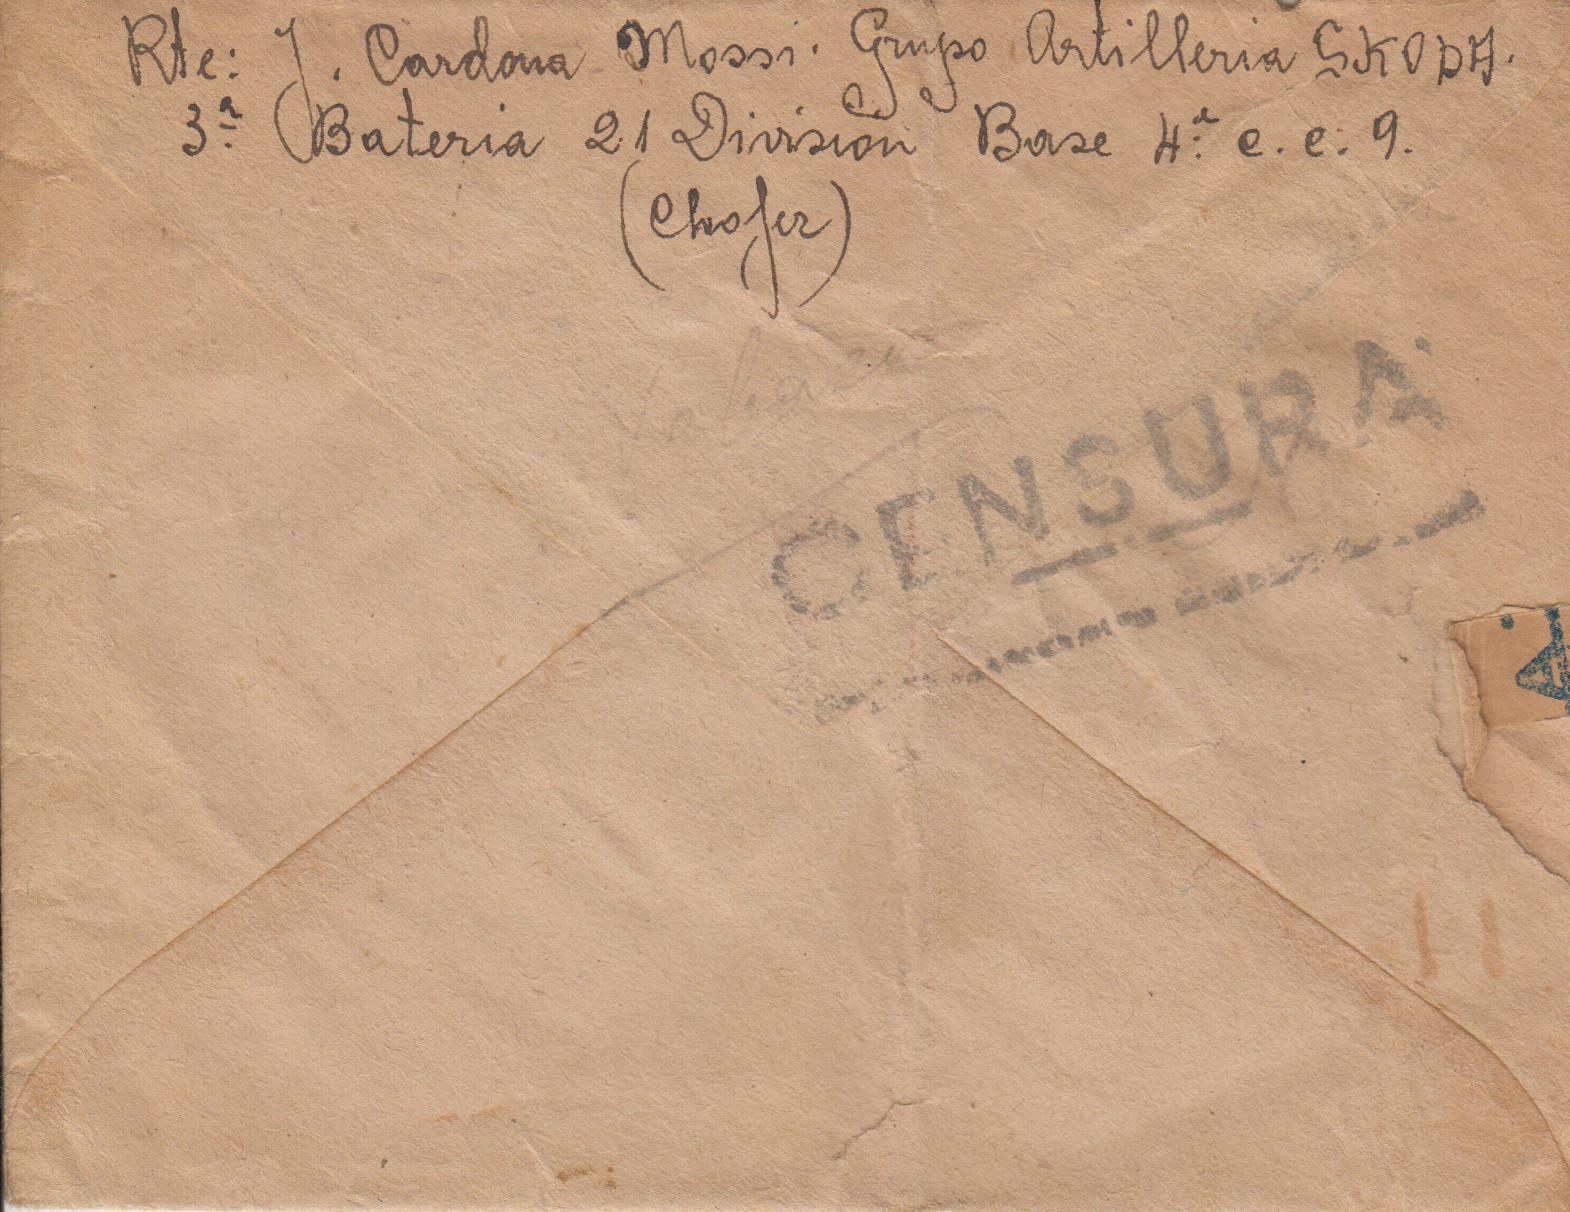 Rte: J. Cardona Mossi. Grupo Artilleria SKODA.
3ª Bateria 21 División Base 4ª c.c. 9.
(Chofer)
CENSURA